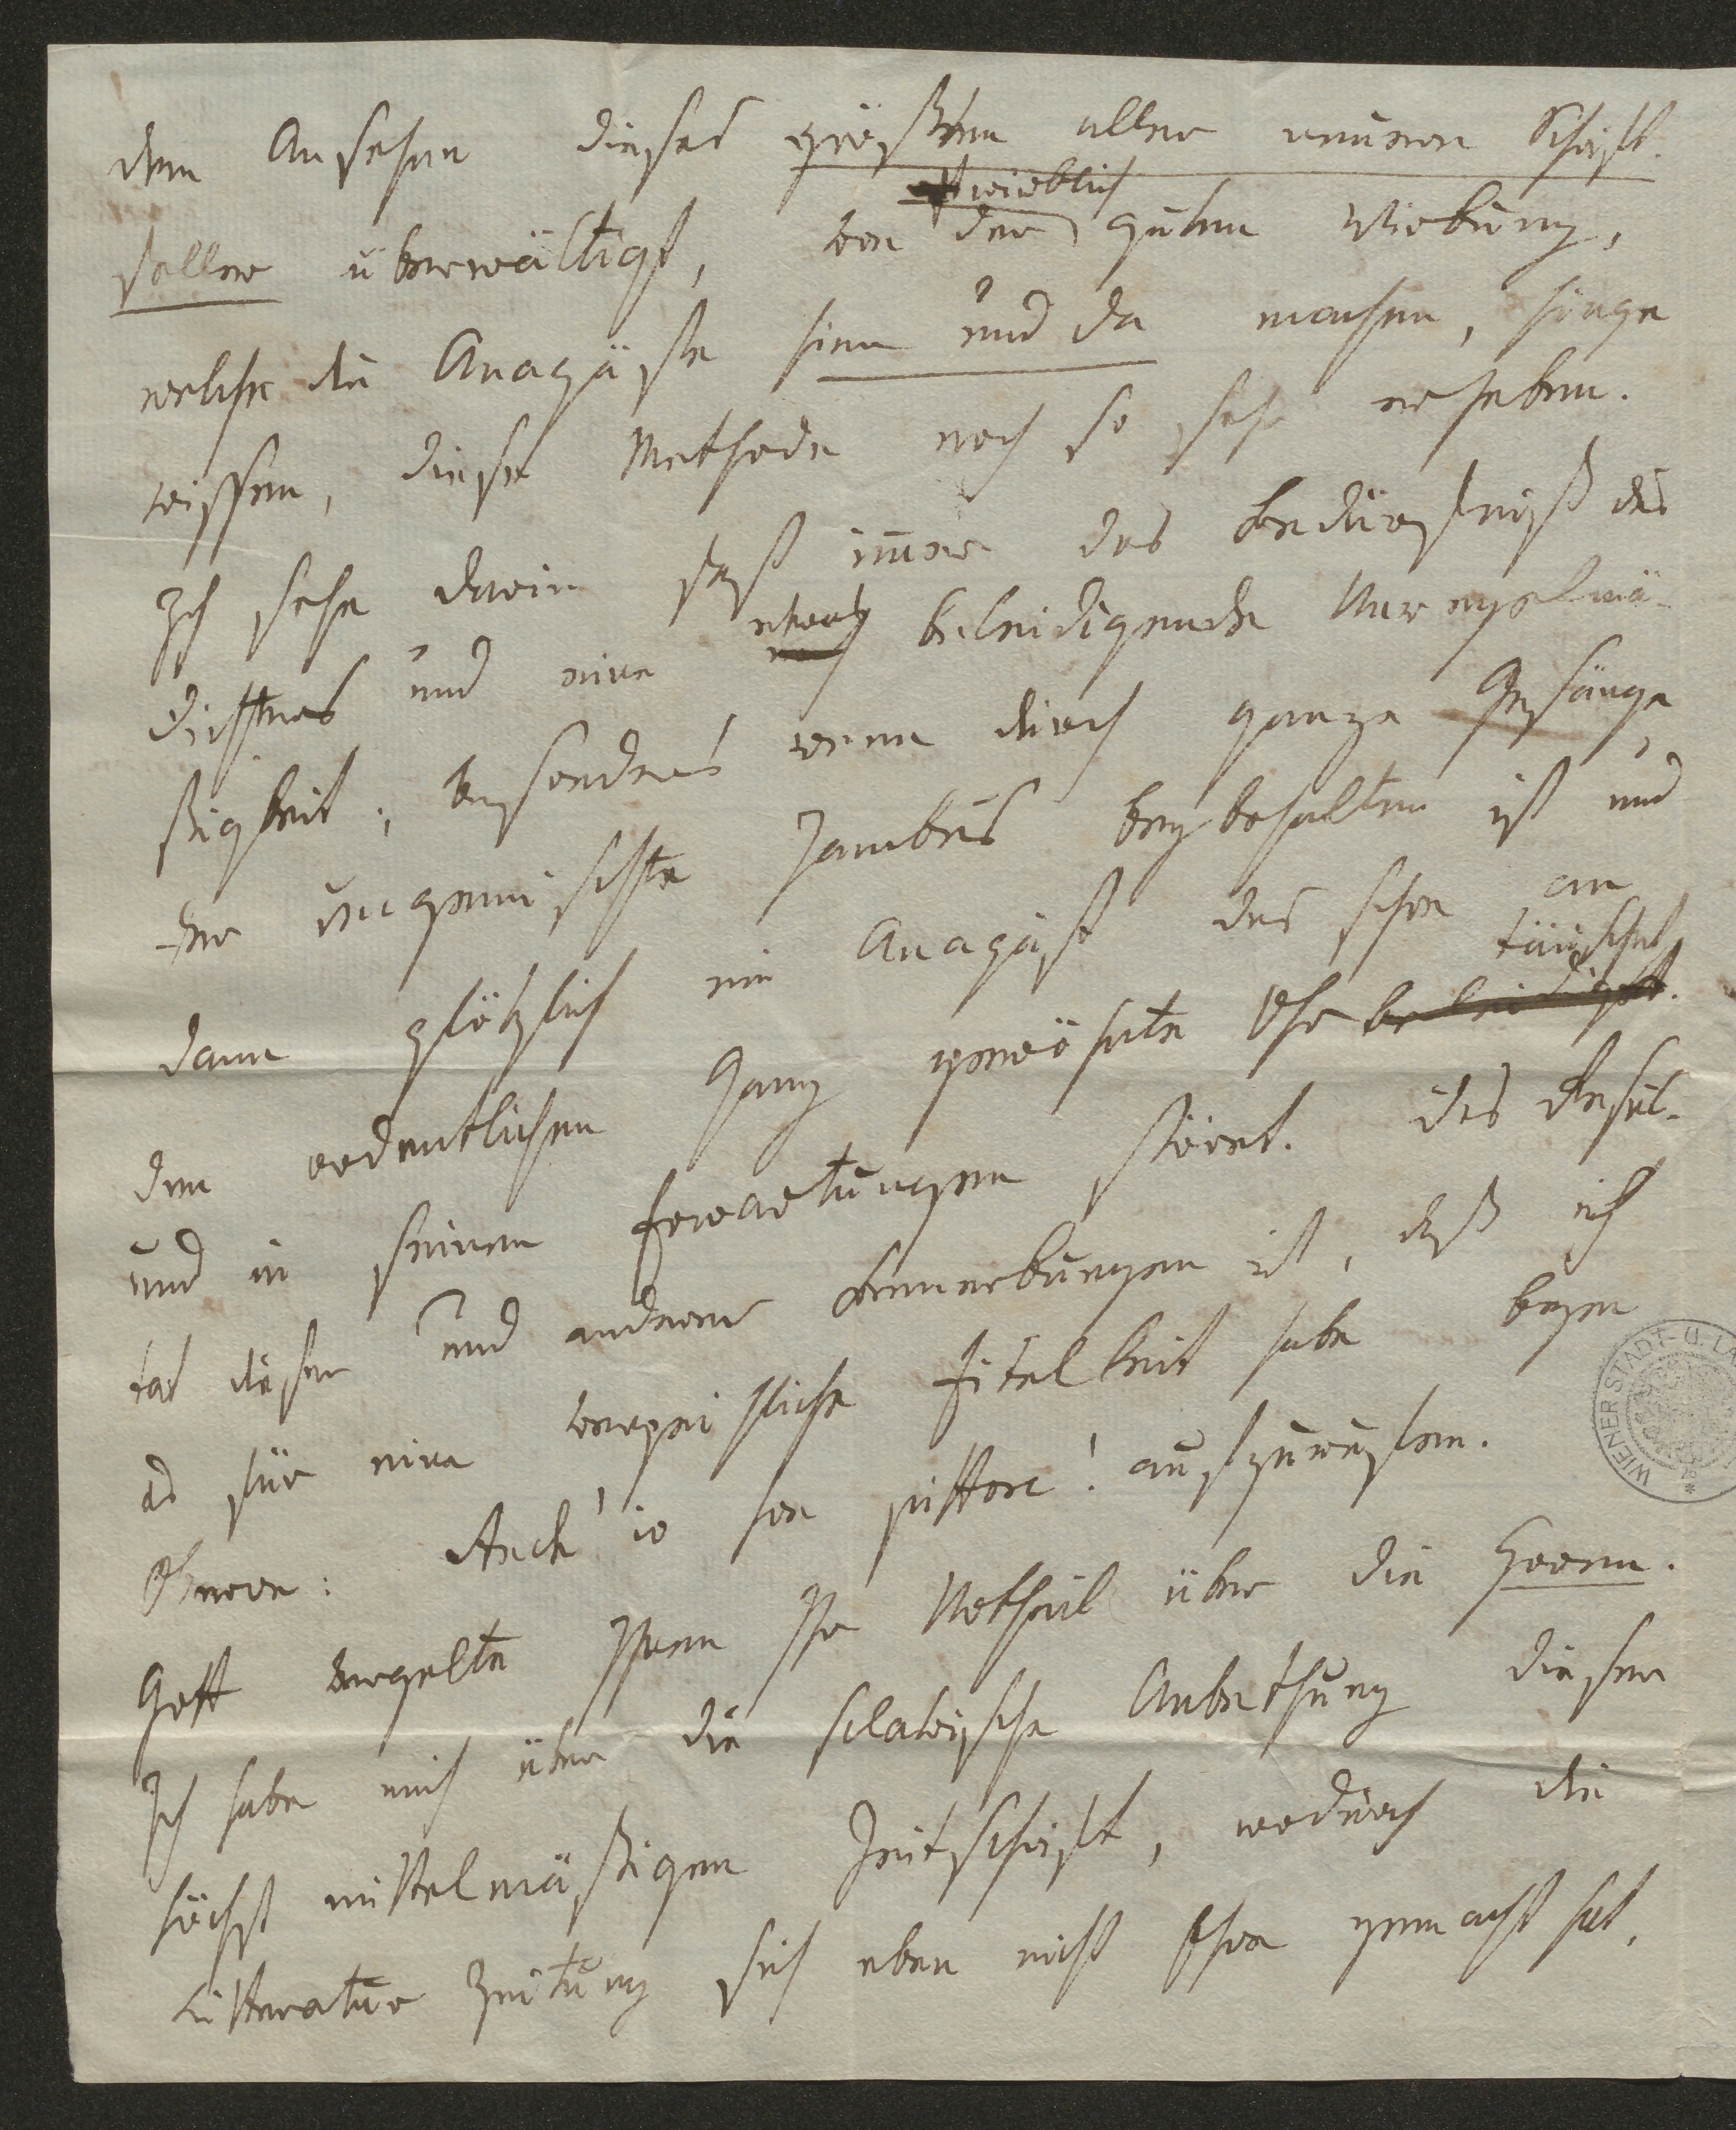 dem Ansehen dieses größten aller neuern Schrift-
steller überwältigt, von der wirklich guten Wirkung,
welche die Anapäste hier und da machen, hinge
rissen, diese Methode noch so sehr erheben.
Ich sehe darin fast immer das Bedürfniß des
Dichters und eine etwas beleidigende Unregelmä-
ßigkeit, besonders wenn durch ganze Gesänge
der ungemischte Jambus beybehalten ist und
dann plötzlich ein Anapäst das schon an
den ordentlichen Gang gewöhnte Ohr täuschet
beleidigt.
und in seinen Erwartungen störet. Das Resul-
tat dieser und anderer Bemerkungen ist, daß ich
es für eine verzeihliche Eitelkeit habe gegen
Anch' io son pittore! auszurufen.
Gott vergelte Ihnen Ihr Urtheil über die Horen.
Ich habe mich über die sclavische Anbethung dieser
höchst mittelmäßigen Zeitschrift, wodurch die
Litteratur Zeitung sich eben nicht Ehre gemacht hat,
WIENER STADT- U. LA